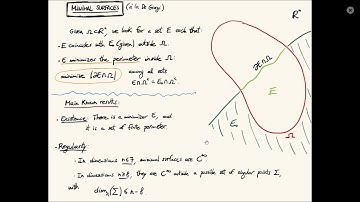 MINIMAL SURFACES (à la De Giorgi)
Given Ω⊂ℝⁿ, we look for a set E such that:
· E coincides with E₀ (given) outside Ω.
· E minimizes the perimeter inside Ω:
minimize |∂E∩Ω| among all sets
E∩Ωᶜ = E₀∩Ωᶜ
Main known results:
· Existence: There is a minimizer E, and
it is a set of finite perimeter.
· Regularity:
· In dimensions n≤7, minimal surfaces are C^∞
· In dimensions n≥8, they are C^∞ outside a possible set of singular points Σ,
with dim_H(Σ) ≤ n-8
ℝⁿ
∂E∩Ω
E
E₀
Ω